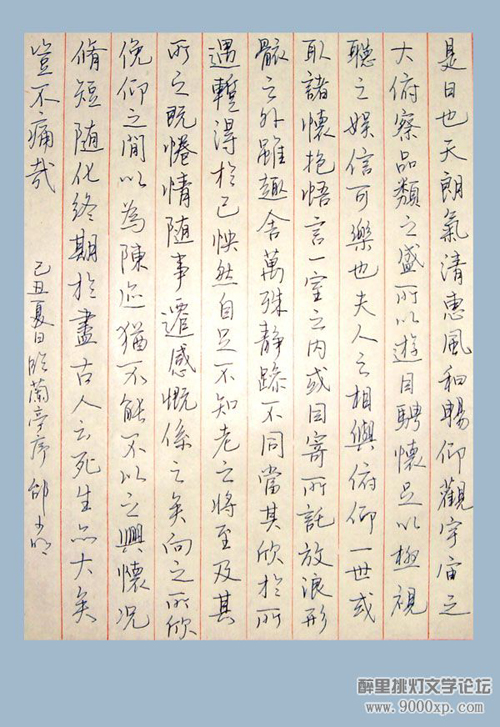 是日也天朗氣清惠風和暢仰觀宇宙之
大俯察品類之盛所以遊目騁懷足以極視
聽之娛信可樂也夫人之相與俯仰一世或
取諸懷抱悟言一室之内或因寄所託放浪形
骸之外雖趣舍萬殊静躁不同當其欣於所
遇蹔得於己怏然自足不知老之將至及其
所之既惓情随事遷感慨係之矣向之所欣
俛仰之間以為陳迹猶不能不以之興懷況
脩短随化終期於盡古人云死生亦大矣
豈不痛哉
己丑夏日臨蘭亭序
醉里挑灯文学论坛
www.9000xp.com